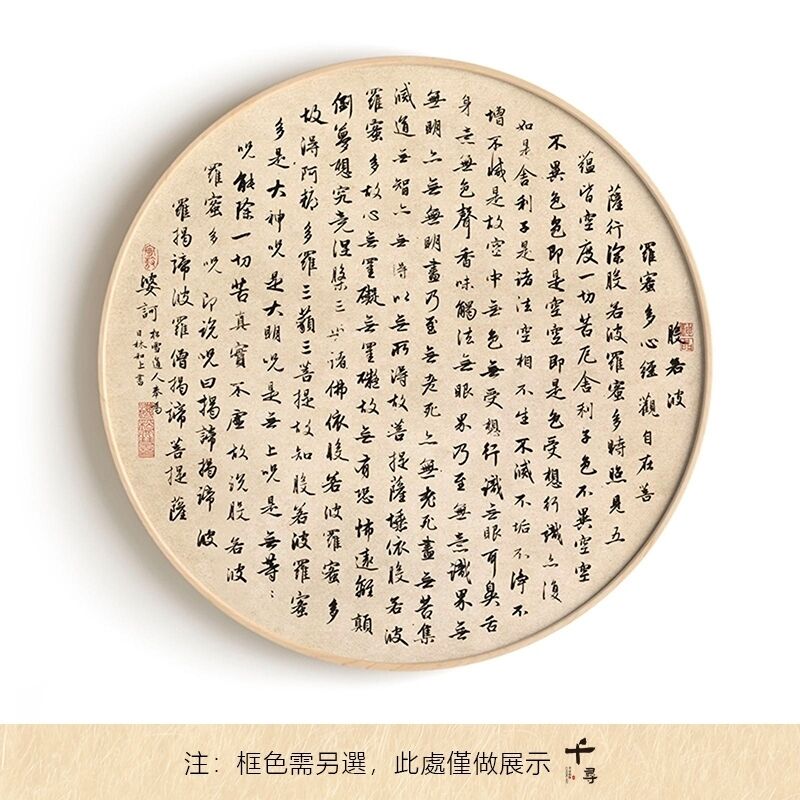 般若波
羅蜜多心經觀自在菩
薩行深般若波羅蜜多時照見五
蘊皆空度一切苦厄舍利子色不異空空
不異色色即是空空即是色受想行識亦復
如是舍利子是諸法空相不生不滅不垢不净不
增不減是故空中无色无受想行識无眼耳鼻舌
身意無色聲香味觸法無眼界乃至無意識界無
無明亦無無明盡乃至無老死亦無老死盡無苦集
滅道无智亦無得以無所得故菩提薩埵依般若波
羅蜜多故心無罣礙無罣礙故無有恐怖遠離顛
倒夢想究竟涅槃三世諸佛依般若波羅蜜多
故得阿耨多羅三藐三菩提故知般若波羅蜜
多是大神呪是大明呪是無上呪是無等：
呪能除一切苦真實不虛故説般若波
羅蜜多呪即説呪曰揭諦揭諦波
羅揭諦波羅僧揭諦菩提薩
婆訶
松雪道人奉為
日林和上書
注：框色需另選，此處僅做展示
千尋